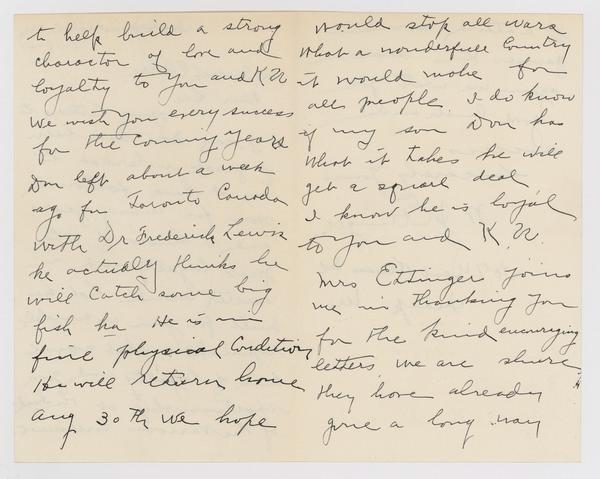 to help build a strong
character of love and
loyalty to you and K U
We wish you every success
for the coming years
Don left about a week
ago for Toronto Canada
with Dr Frederick Lewis
he actually thinks he
will catch some big
fish ha He is in
fine physical condition
He will return home
aug 30 th we hope
would stop all wars
what a wonderfull country
it would make for
all people. I do know
if my son Don has
what it takes he will
get a square deal
I know he is loyal
to you and K. U.
Mrs Ettinger joins
me in thanking you
for the kind encouraging
letters, we are shure
they have already
gone a long way